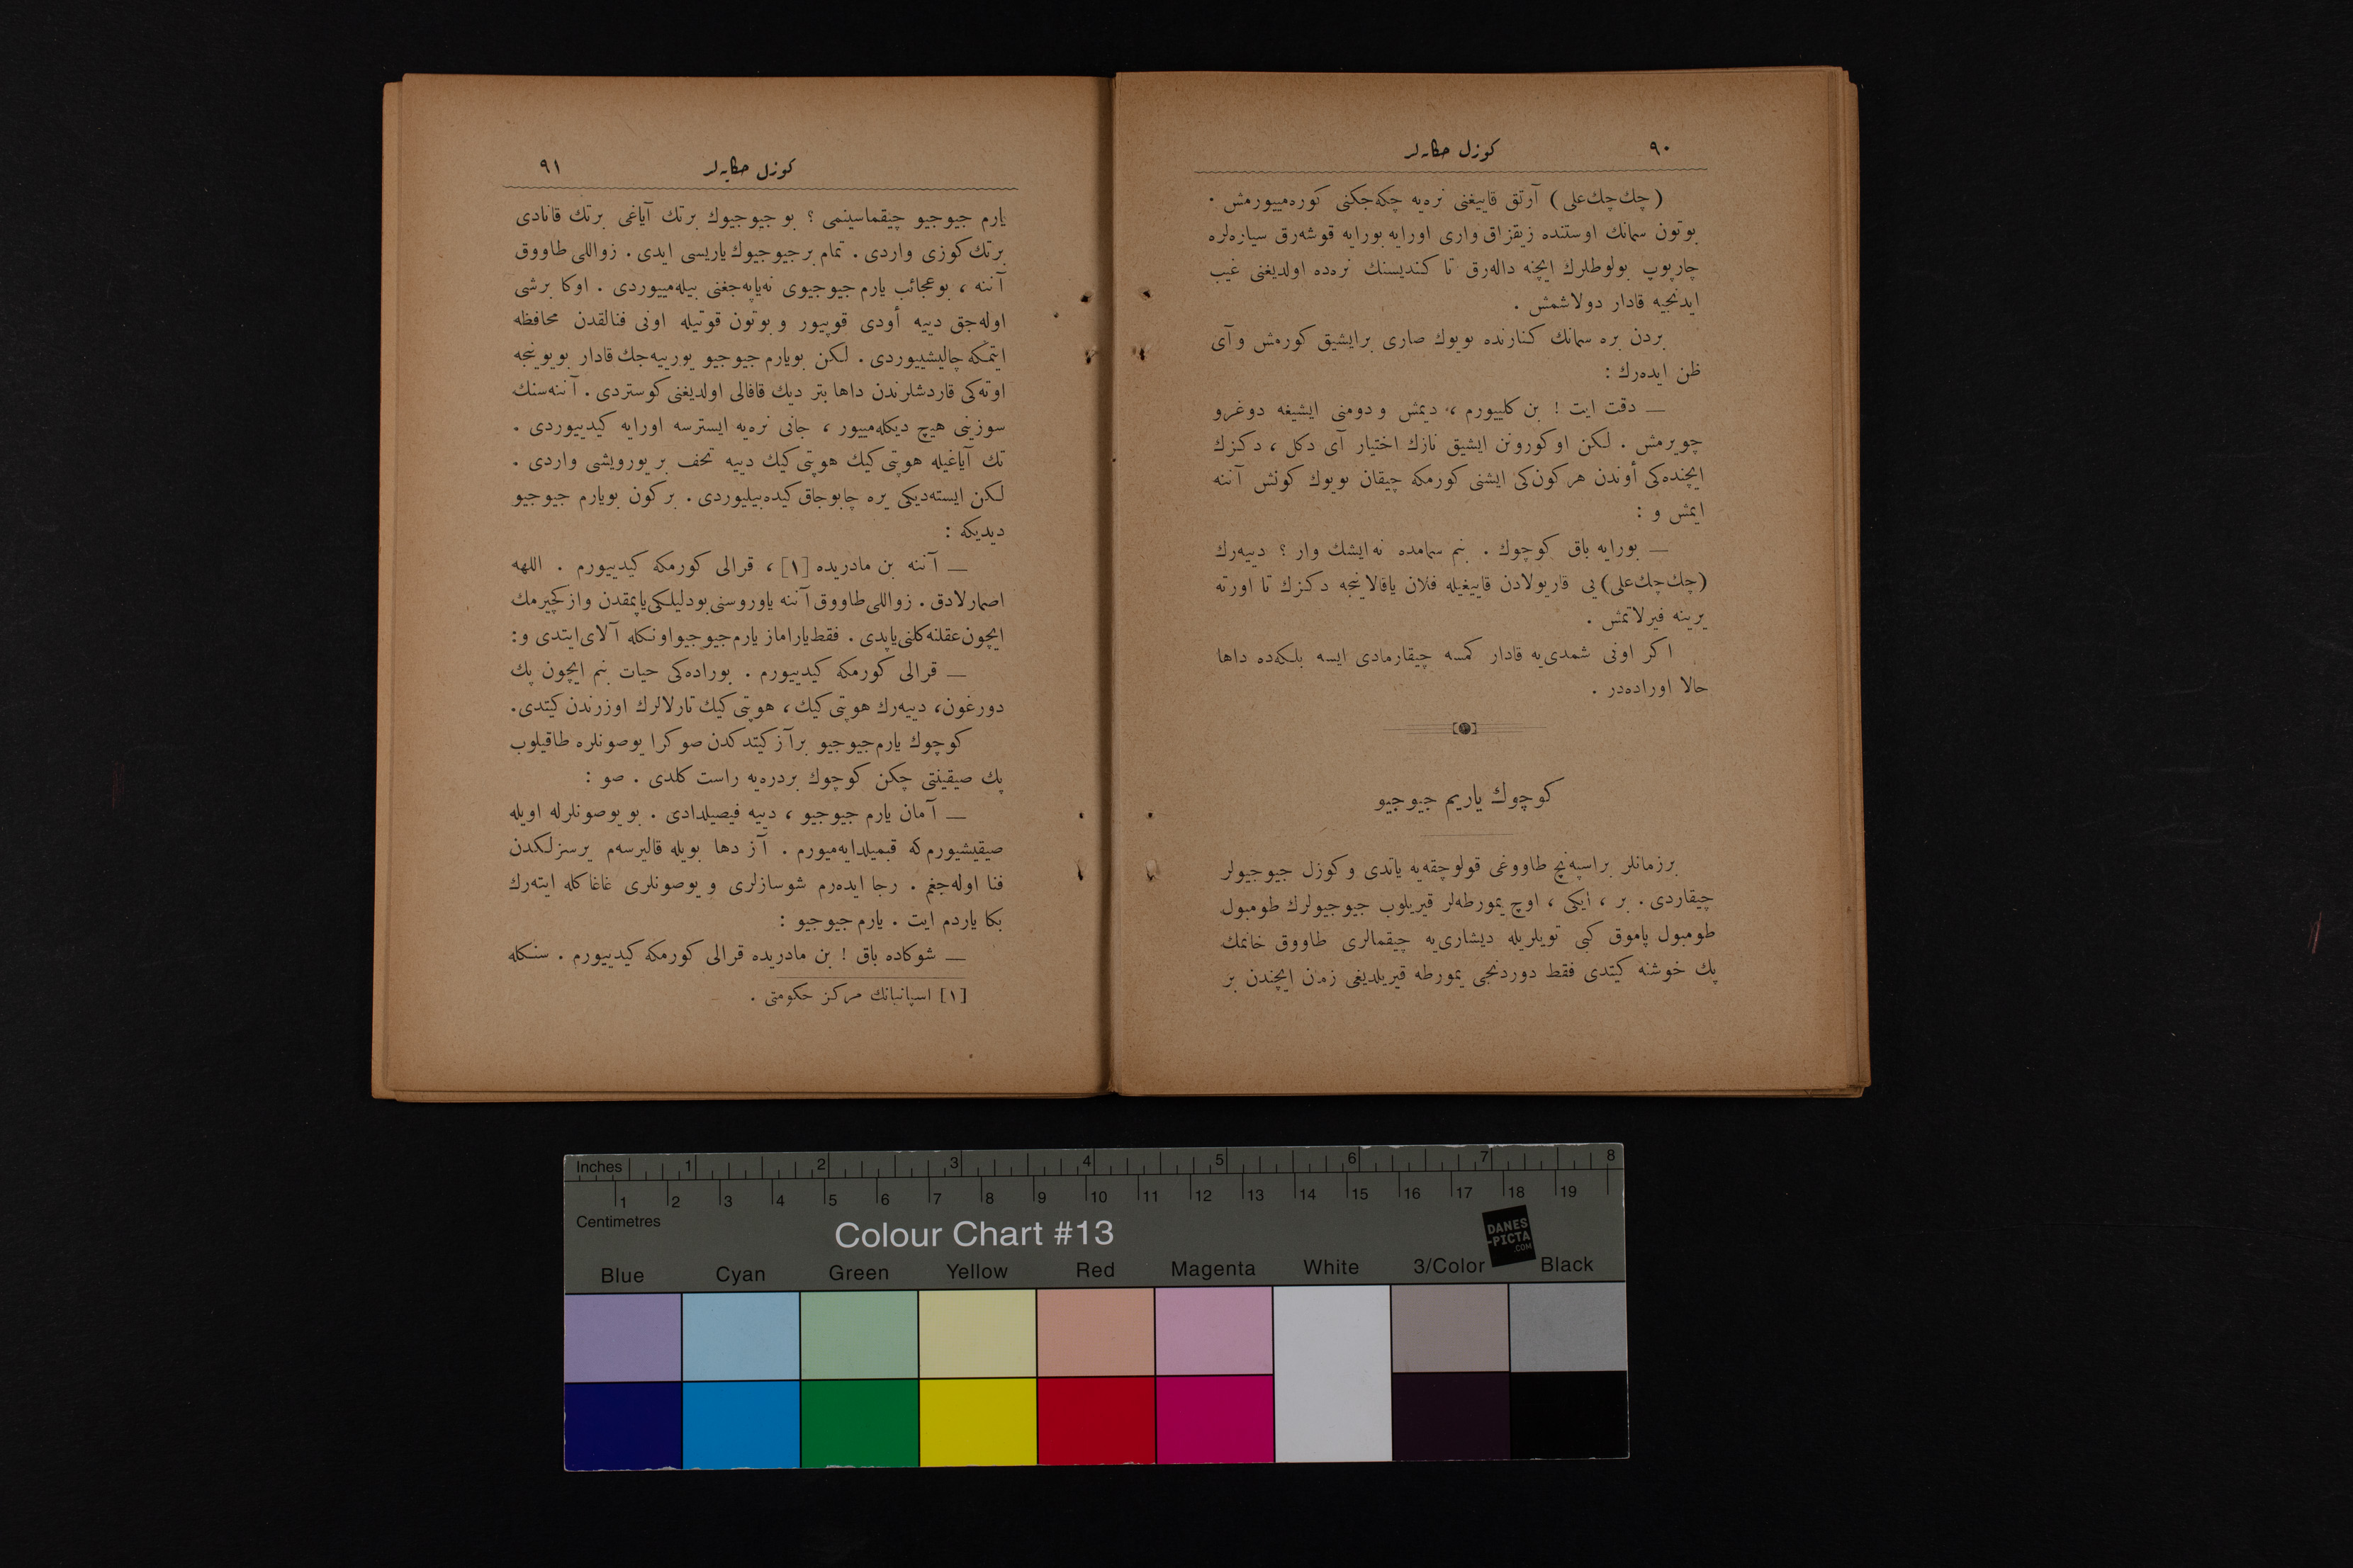 ٩٠
كوزل حكايه‌لر
(چك‌چك‌علی) آرتق قاییغنی نره‌یه چكه‌جكنی كوره‌مییورمش .
بوتون سمانك اوستنده زیقزاق‌واری اورایه بورایه قوشه‌رق سیاره‌لره
چارپوپ بولوطلرك ایچنه داله‌رق تا كندیسنك نره‌ده اولدیغنی غیب
ایدنجیه قادار دولاشمش .
بردن بره سمانك كنارنده بویوك صاری برایشیق كورمش وآی
ظن ایده‌رك :
— دقت ایت ! بن كلییورم ، دیمش و دومنی ایشیغه دوغرو
چویرمش . لكن اوكورونن ایشیق نازك اختیار آی دكل ، دكزك
ایچنده‌كی أوندن هركون‌كی ایشنی كورمكه چیقان بویوك كونش آننه
ایمش و :
— بورایه باق كوچوك . بنم سمامده نه‌ایشك وار ؟ دییه‌رك
(چك‌چك‌علی)یی قاریولادن قاییغیله فلان یاقالاینجه دكزك تا اورته
یرینه فیرلاتمش .
اكر اونی شمدی‌یه قادار كمسه چیقارمادی ایسه بلكه‌ده داها
حالا اوراده‌در .
كوچوك یاریم جیوجیو
برزمانلر براسپه‌نچ طاووغی قولوچقه‌یه یاتدی وكوزل جیوجیولر
چیقاردی . بر ، ایكی ، اوچ یمورطه‌لر قیریلوب جیوجیولرك طومبول
طومبول پاموق كبی تویلریله دیشاری‌یه چیقمالری طاووق خانمك
پك خوشنه كیتدی فقط دوردنجی یمورطه قیریلدیغی زمان ایچندن بر
كوزل حكایه‌لر
٩١
یارم جیوجیو چیقماسینمی ؟ بو جیوجیوك برتك آیاغی برتك قانادی
برتك كوزی واردی . تمام برجیوجیوك یاریسی ایدی . زواللی طاووق
آننه ، بوعجائب یارم جیوجیوی نه‌یاپه‌جغنی بیله‌مییوردی . اوكا برشی
اوله‌جق دییه أودی قوپیور و بوتون قوتیله اونی فنالقدن محافظه
ایتمكه چالیشییوردی . لكن بویارم جیوجیو یورییه‌جك قادار بویوینجه
اوته‌كی قاردشلرندن داها بتر دیك قافالی اولدیغنی كوستردی . آننه‌سنك
سوزینی هیچ دیكله‌مییور ، جانی نره‌یه ایسترسه اورایه كیدییوردی .
تك آیاغیله هوپتی كیك هوپتی كیك دییه تحف بر یورویشی واردی .
لكن ایسته‌دیكی یره چابوجاق كیده‌بیلیوردی . بركون بویارم جیوجیو
دیدیكه :
— آننه بن مادریده [١] ، قرالی كورمكه كیدییورم . اللهه
اصمارلادق . زواللی طاووق آننه یاوروسنی بودلیلكی یاپمقدن وازكچیرمك
ایچون عقلنه كلنی یاپدی . فقط یاراماز یارم جیوجیو اونكله آلای ایتدی و :
— قرالی كورمكه كیدییورم . بوراده‌كی حیات بنم ایچون پك
دورغون، دییه‌رك هوپتی كیك ، هوپتی كیك تارلالرك اوزرندن كیتدی.
كوچوك یارم جیوجیو برآز كیتدكدن صوكرا یوصونلره طاقیلوب
پك صیقینتی چكن كوچوك بردره‌یه راست كلدی . صو :
— آمان یارم جیوجیو ، دییه فیصیلدادی . بو یوصونلرله اویله
صیقیشیورم كه قیمیلدایه‌میورم . آز دها بویله قالیرسه‌م یرسزلكدن
فنا اوله‌جغم . رجا ایده‌رم شوسازلری و یوصونلری غاغاكله ایته‌رك
بكا یاردم ایت . یارم جیوجیو :
— شوكاده باق ! بن مادریده قرالی كورمكه كیدییورم . سنكله
[١] اسپانیانك مركز حكومتی .
Inches 1 2 3 4 5 6 7 8
1 2 3 4 5 6 7 8 9 10 11 12 13 14 15 16 17 18 19
Centimetres
Colour Chart #13
DANES
-PICTA
.COM
Blue Cyan Green Yellow Red Magenta White 3/Color Black